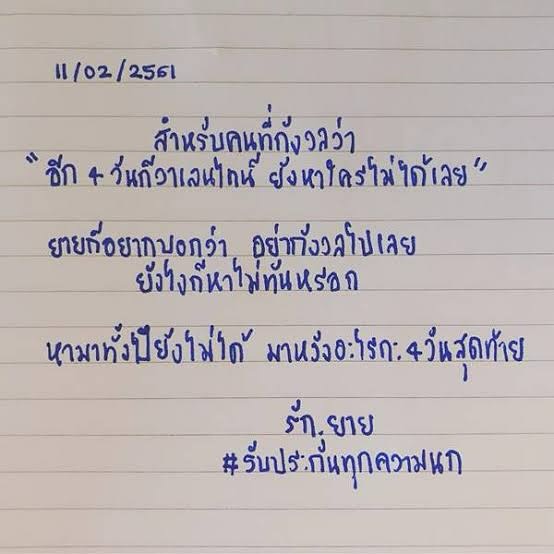 11/02/2561
สำหรับคนที่กังวลว่า
"อีก 4 วันก็วาเลนไทน์ ยังหาใครไม่ได้เลย"
ยายก็อยากบอกว่า อย่ากังวลไปเลย
ยังไงก็หาไม่ทันหรอก
หามาทั้งปียังไม่ได้ มาหวังอะไรกะ 4 วันสุดท้าย
รัก. ยาย
#รับประกันทุกความนก